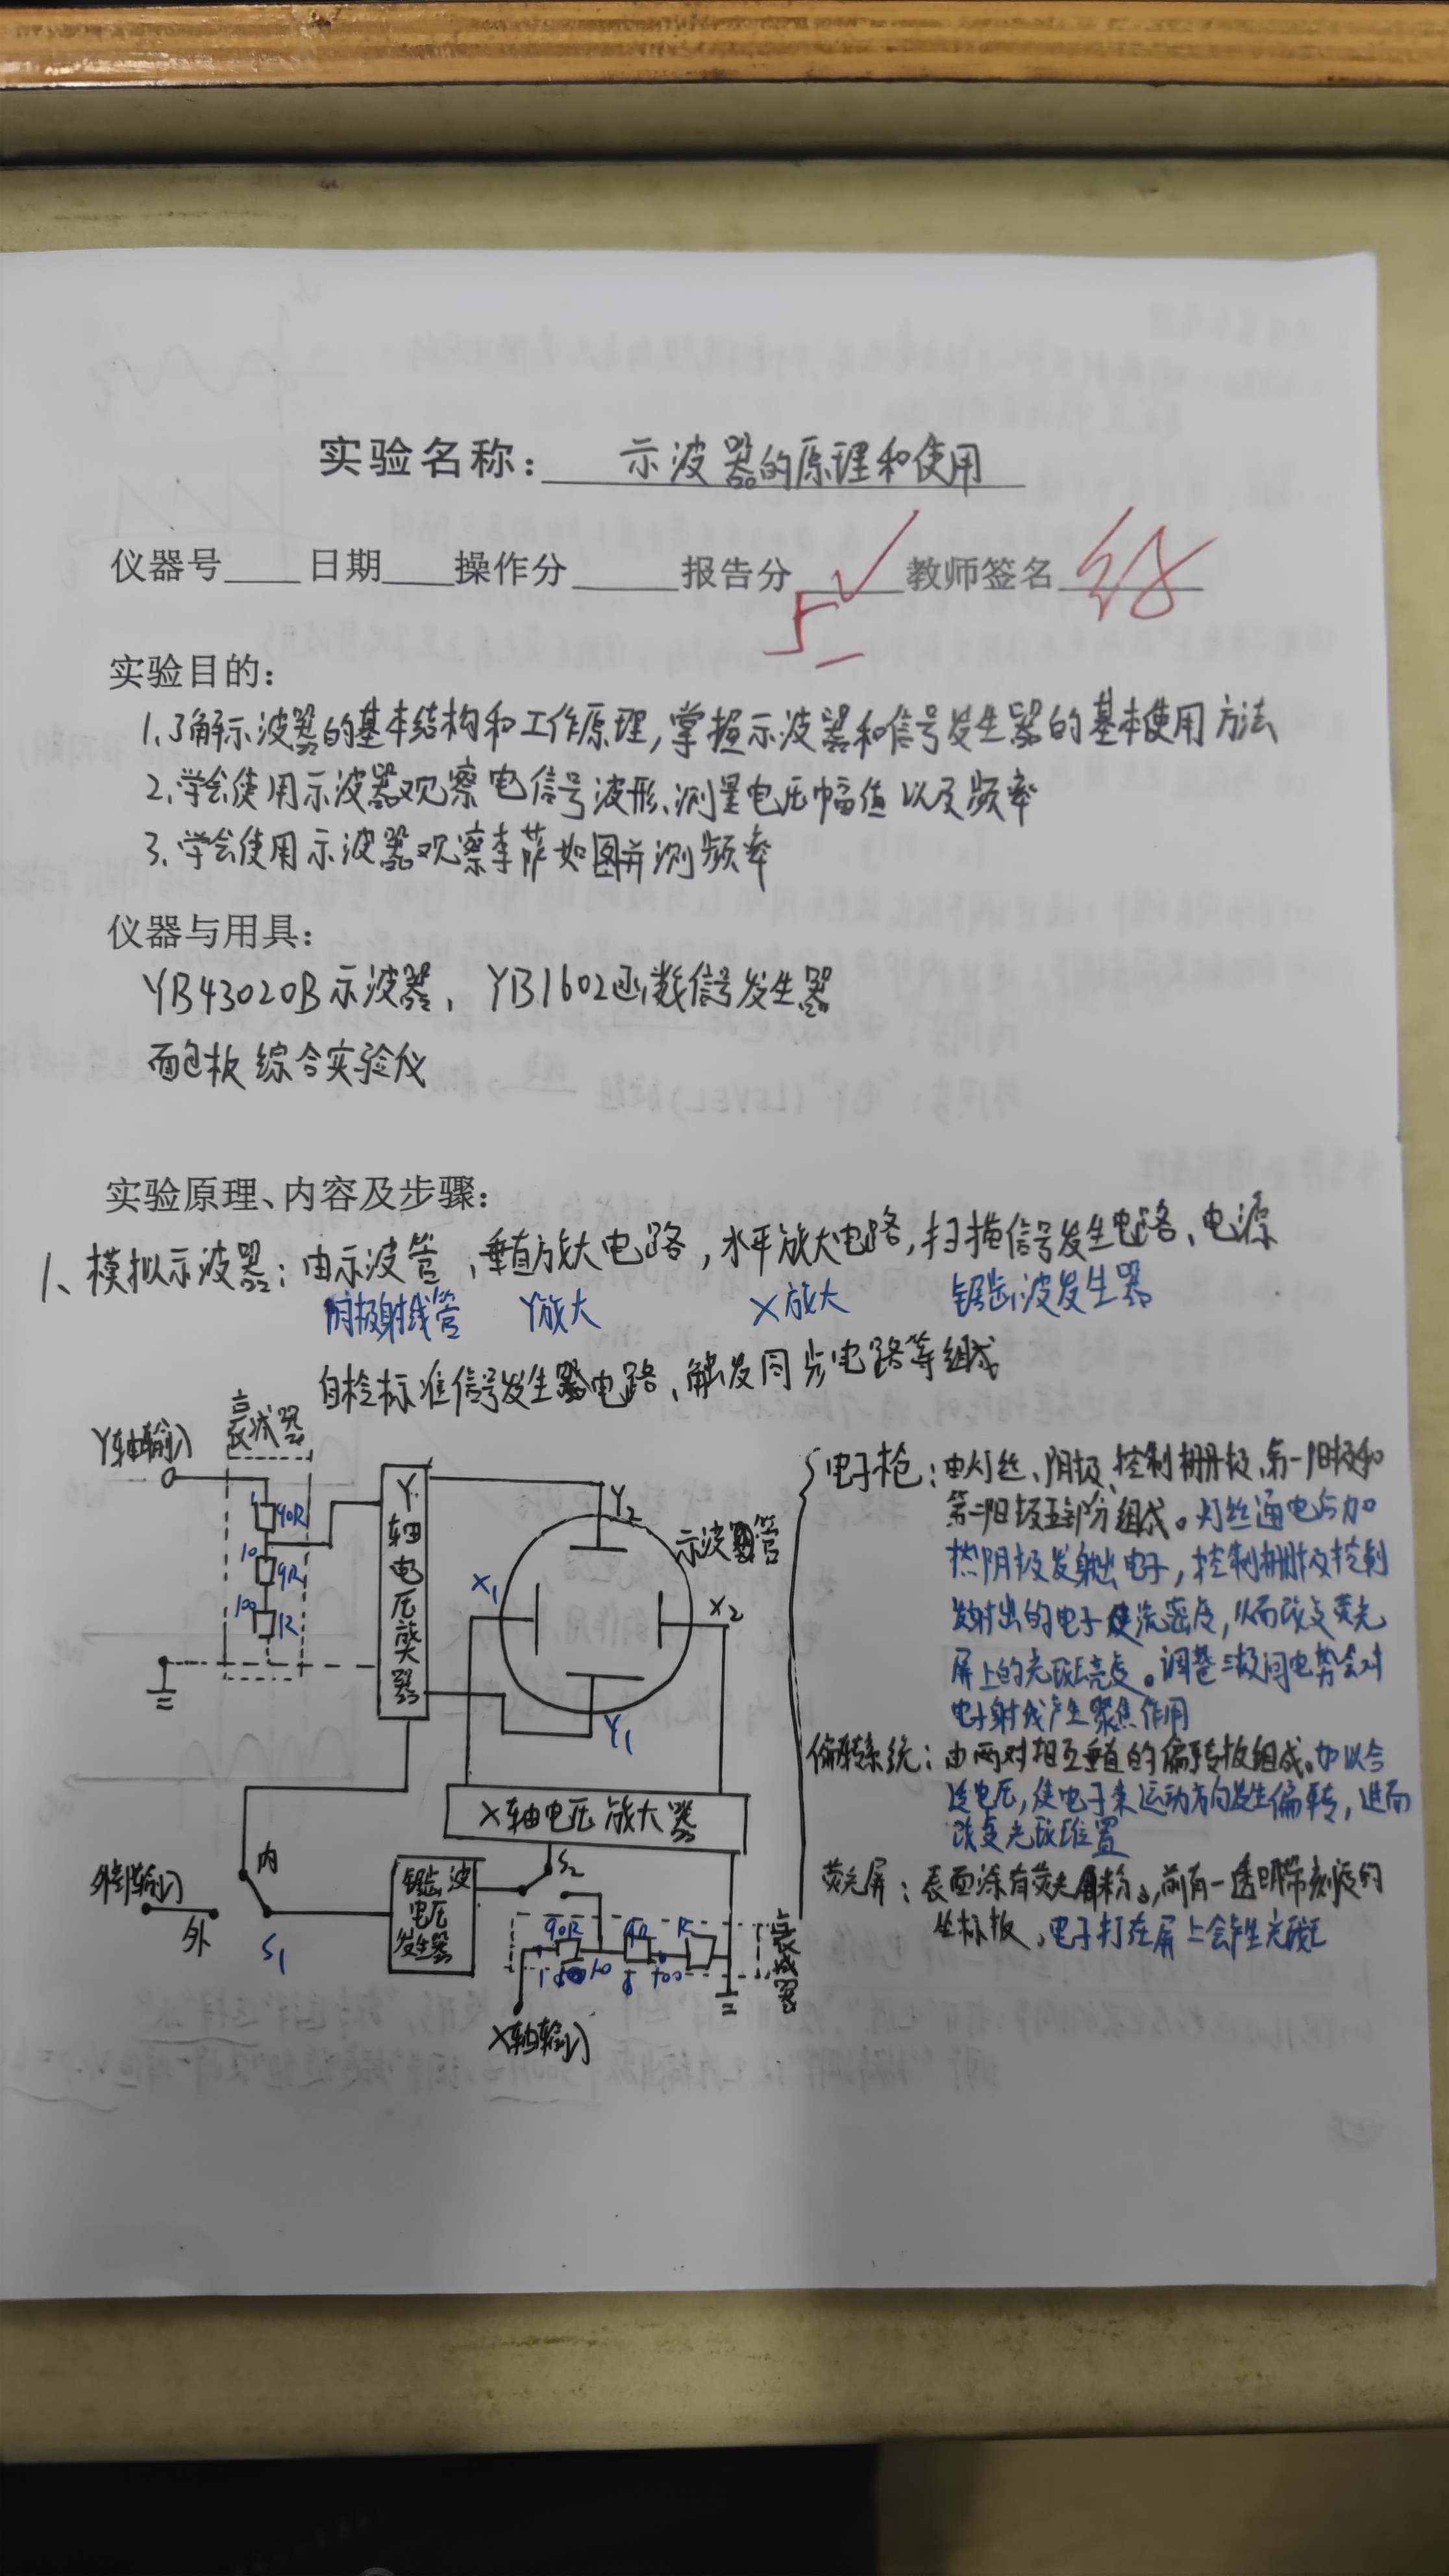 实验名称：示波器的原理和使用
仪器号____日期____操作分____报告分____教师签名____
5
实验目的：
1、了解示波器的基本结构和工作原理，掌握示波器和信号发生器的基本使用方法
2、学会使用示波器观察电信号波形、测量电压幅值以及频率
3、学会使用示波器观察李萨如图并测频率
仪器与用具：
YB43020B示波器，YB1602函数信号发生器
面包板综合实验仪
实验原理、内容及步骤：
1、模拟示波器：由示波管、垂直放大电路，水平放大电路，扫描信号发生电路、电源
阴极射线管 Y放大 X放大 锯齿波发生器
自检标准信号发生器电路、触发同步电路等组成
Y轴输入
衰减器
1
90R
10
9R
100
R
Y轴电压放大器
Y2
示波管
X1
X2
Y1
X轴电压放大器
内
外部输入
外
S1
锯齿波
电压
发生器
S2
90R 9R R
1 10 100
衰减器
X轴输入
电子枪：由灯丝、阴极、控制栅极、第一阳极和
第二阳极五部分组成。灯丝通电后加
热阴极发射出电子，控制栅极控制
发射出的电子流密度，从而改变荧光
屏上的光斑亮度。调整三极间电势会对
电子射线产生聚焦作用
偏转系统：由两对相互垂直的偏转板组成。加以合
适电压，使电子束运动方向发生偏转，进而
改变光斑位置
荧光屏：表面涂有荧光粉，前有一透明带刻度的
坐标板，电子打在屏上会产生光斑